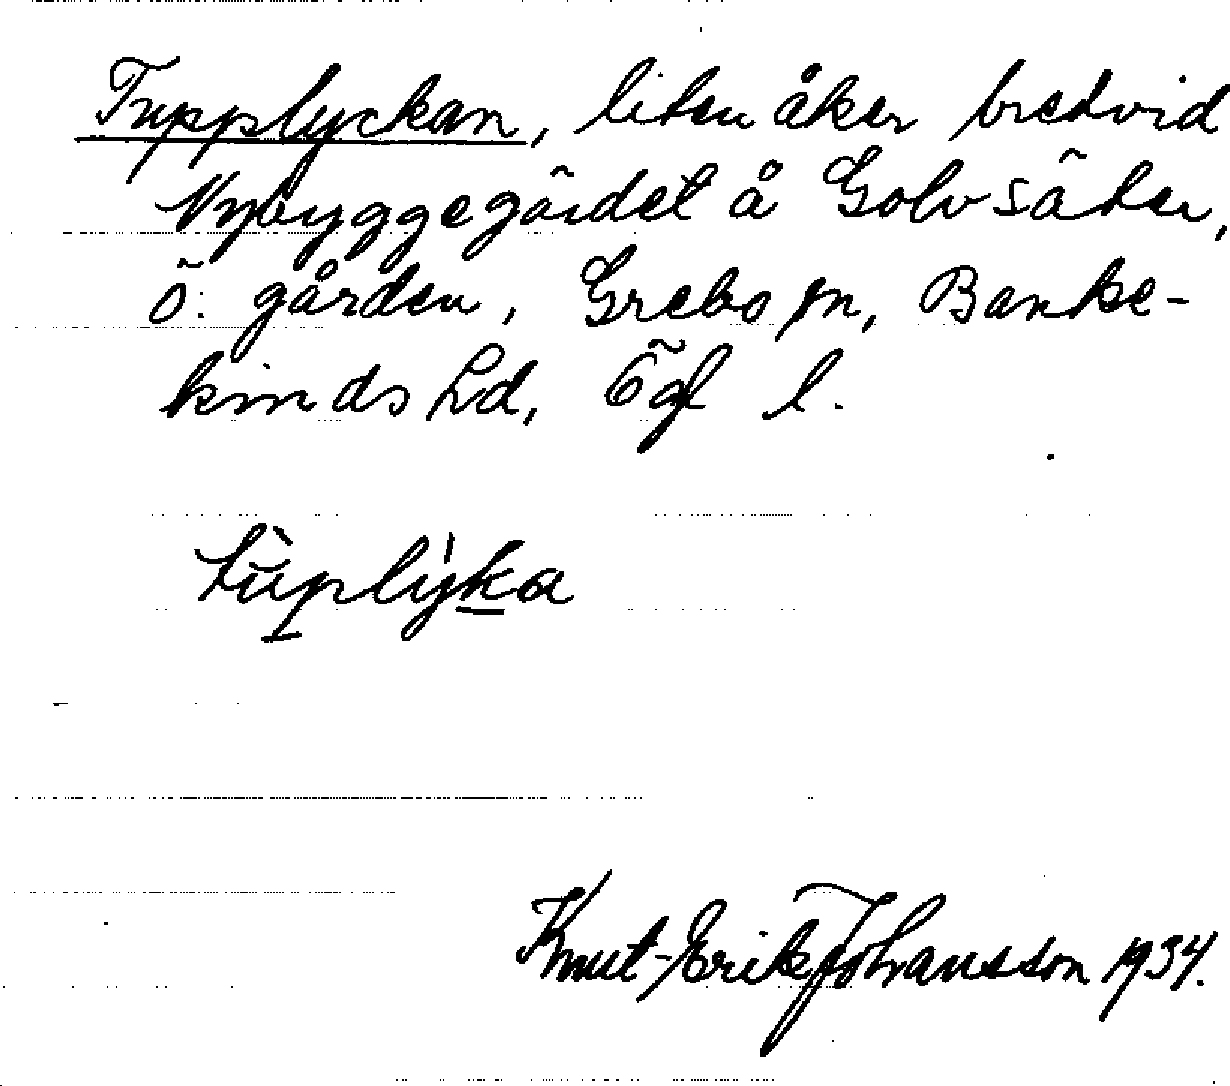 Tupplyckan, liten åker bredvid
Nybyggegärdet å Golvsäter,
Ö. gården, Grebo sn, Banke-
kinds hd, Ögl l.
tùplỳka
Knut-Erik Johansson 1934.